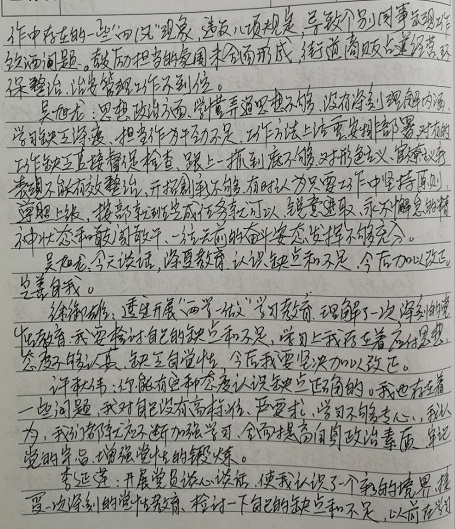 作中存在的一些"四风"现象，违反八项规定，导致个别同事出现工作
饮酒问题。鼓励担当的氛围未全面形成，街道商贩占道经营，环
保整治、治安管理工作不到位。
吴旭龙：思想政治方面，学懂弄通思想不够，没有深刻理解内涵，
学习缺乏深度，担当作为主动不足，工作方法上注重安排部署，对有的
工作缺乏直接督促检查，跟上一抓到底不够，对形式主义、官僚主义等
表现不能有效整治，开拓创新不够，有时认为只要工作中坚持原则，
遵照上级，按部就班完成任务就可以，锐意进取、永不懈怠的精
神状态和敢闯敢干、一往无前的奋斗姿态发挥不够充分。
吴旭龙：今天谈话，深受教育，认识缺点和不足，今后加以改正。
完善自我。
徐御雄：通过开展"两学一做"学习教育，理解了一次深刻的党
性教育，我要检讨自己的缺点和不足，学习上我存在着应付思想，
态度不够认真，缺乏自觉性，今后我要坚决加以改正。
许秋伟：你能有这种态度认识缺点正确的。我也存在着
一些问题，我对自己没有高标准、严要求，学习不够专心，我认
为，我们都应不断加强学习，全面提高自身政治素质，牢记
党的宗旨，增强党性的锻炼。
李延萍：开展党员谈心谈话，使我认识了一个新的境界，接
受一次深刻的党性教育，检讨一下自己的缺点和不足，以前在学习